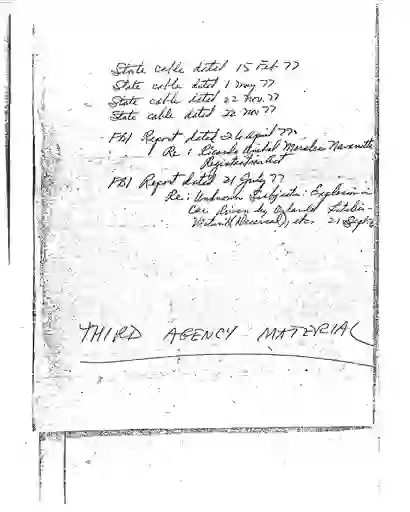 State cable dated 15 Feb 77
State cable dated 1 May 77
State cable dated 22 Nov. 77
State cable dated 22 Nov 77
FBI Report dated 26 April 77
Re: Ricardo Anibal Morales Navarrette
Registration Act
FBI Report dated 21 July 77
Re: Unknown Subjects: Explosion in
Car driven by Orlando Letelier -
Victim (Deceased), etc. 21 Sept
THIRD AGENCY MATERIAL